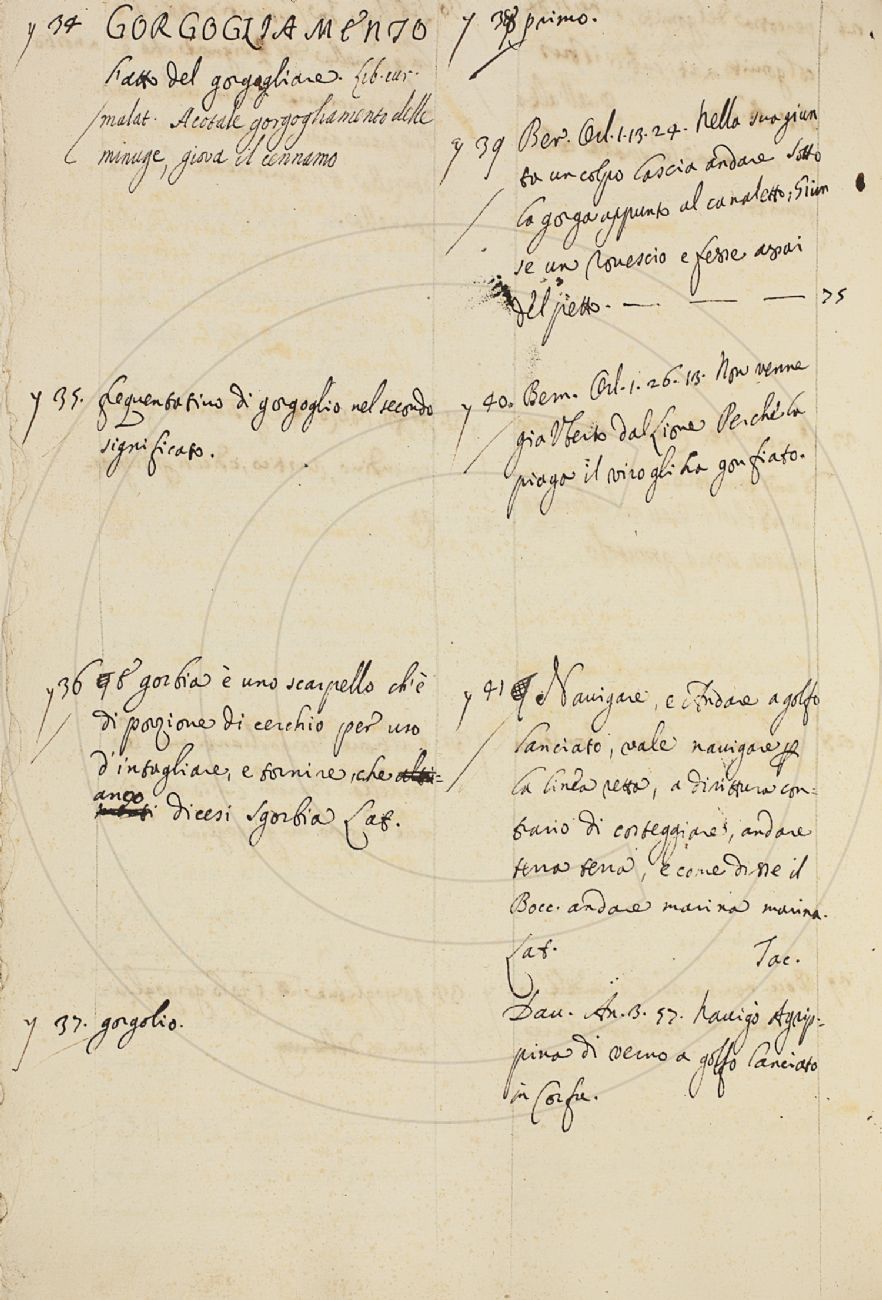 y 34 GORGOGLIAMENTO
Fatto del gorgogliare. Lib. cur.
malat. A cotale gorgogliamento delle
minuge, giova il cennamo
y 35. frequentativo di gorgoglio nel secondo
significato.
y 36 gorbia è uno scarpello ch'è
di porzione di cerchio per uso
d'intagliare, e tornire, che
anco dicesi Sgorbia Lat.
y 37. gorgolio.
y 38 primo.
y 39 Ber. Orl. 1. 13. 24. Nella sua giun
ta un colpo lascia andare Sotto
la gorga appunto al canaletto; Giun
se un rovescio e fesse assai
del petto. — — — 75
y 40. Bern. Orl. 1. 26. 13. Non venne
gia Uberto dal Lione Perché la
piaga il viso gli ha gonfiato.
y 41 Navigare, e Andare a golfo
lanciato, vale navigare p
la linea retta, a dirittura con=
trario di costeggiare, andare
terra terra, e come disse il
Bocc. andare marina marina.
Lat. Tac.
Dav. An. 3. 57. Navigò Agrip=
pina di verno a golfo lanciato
in Corfu.